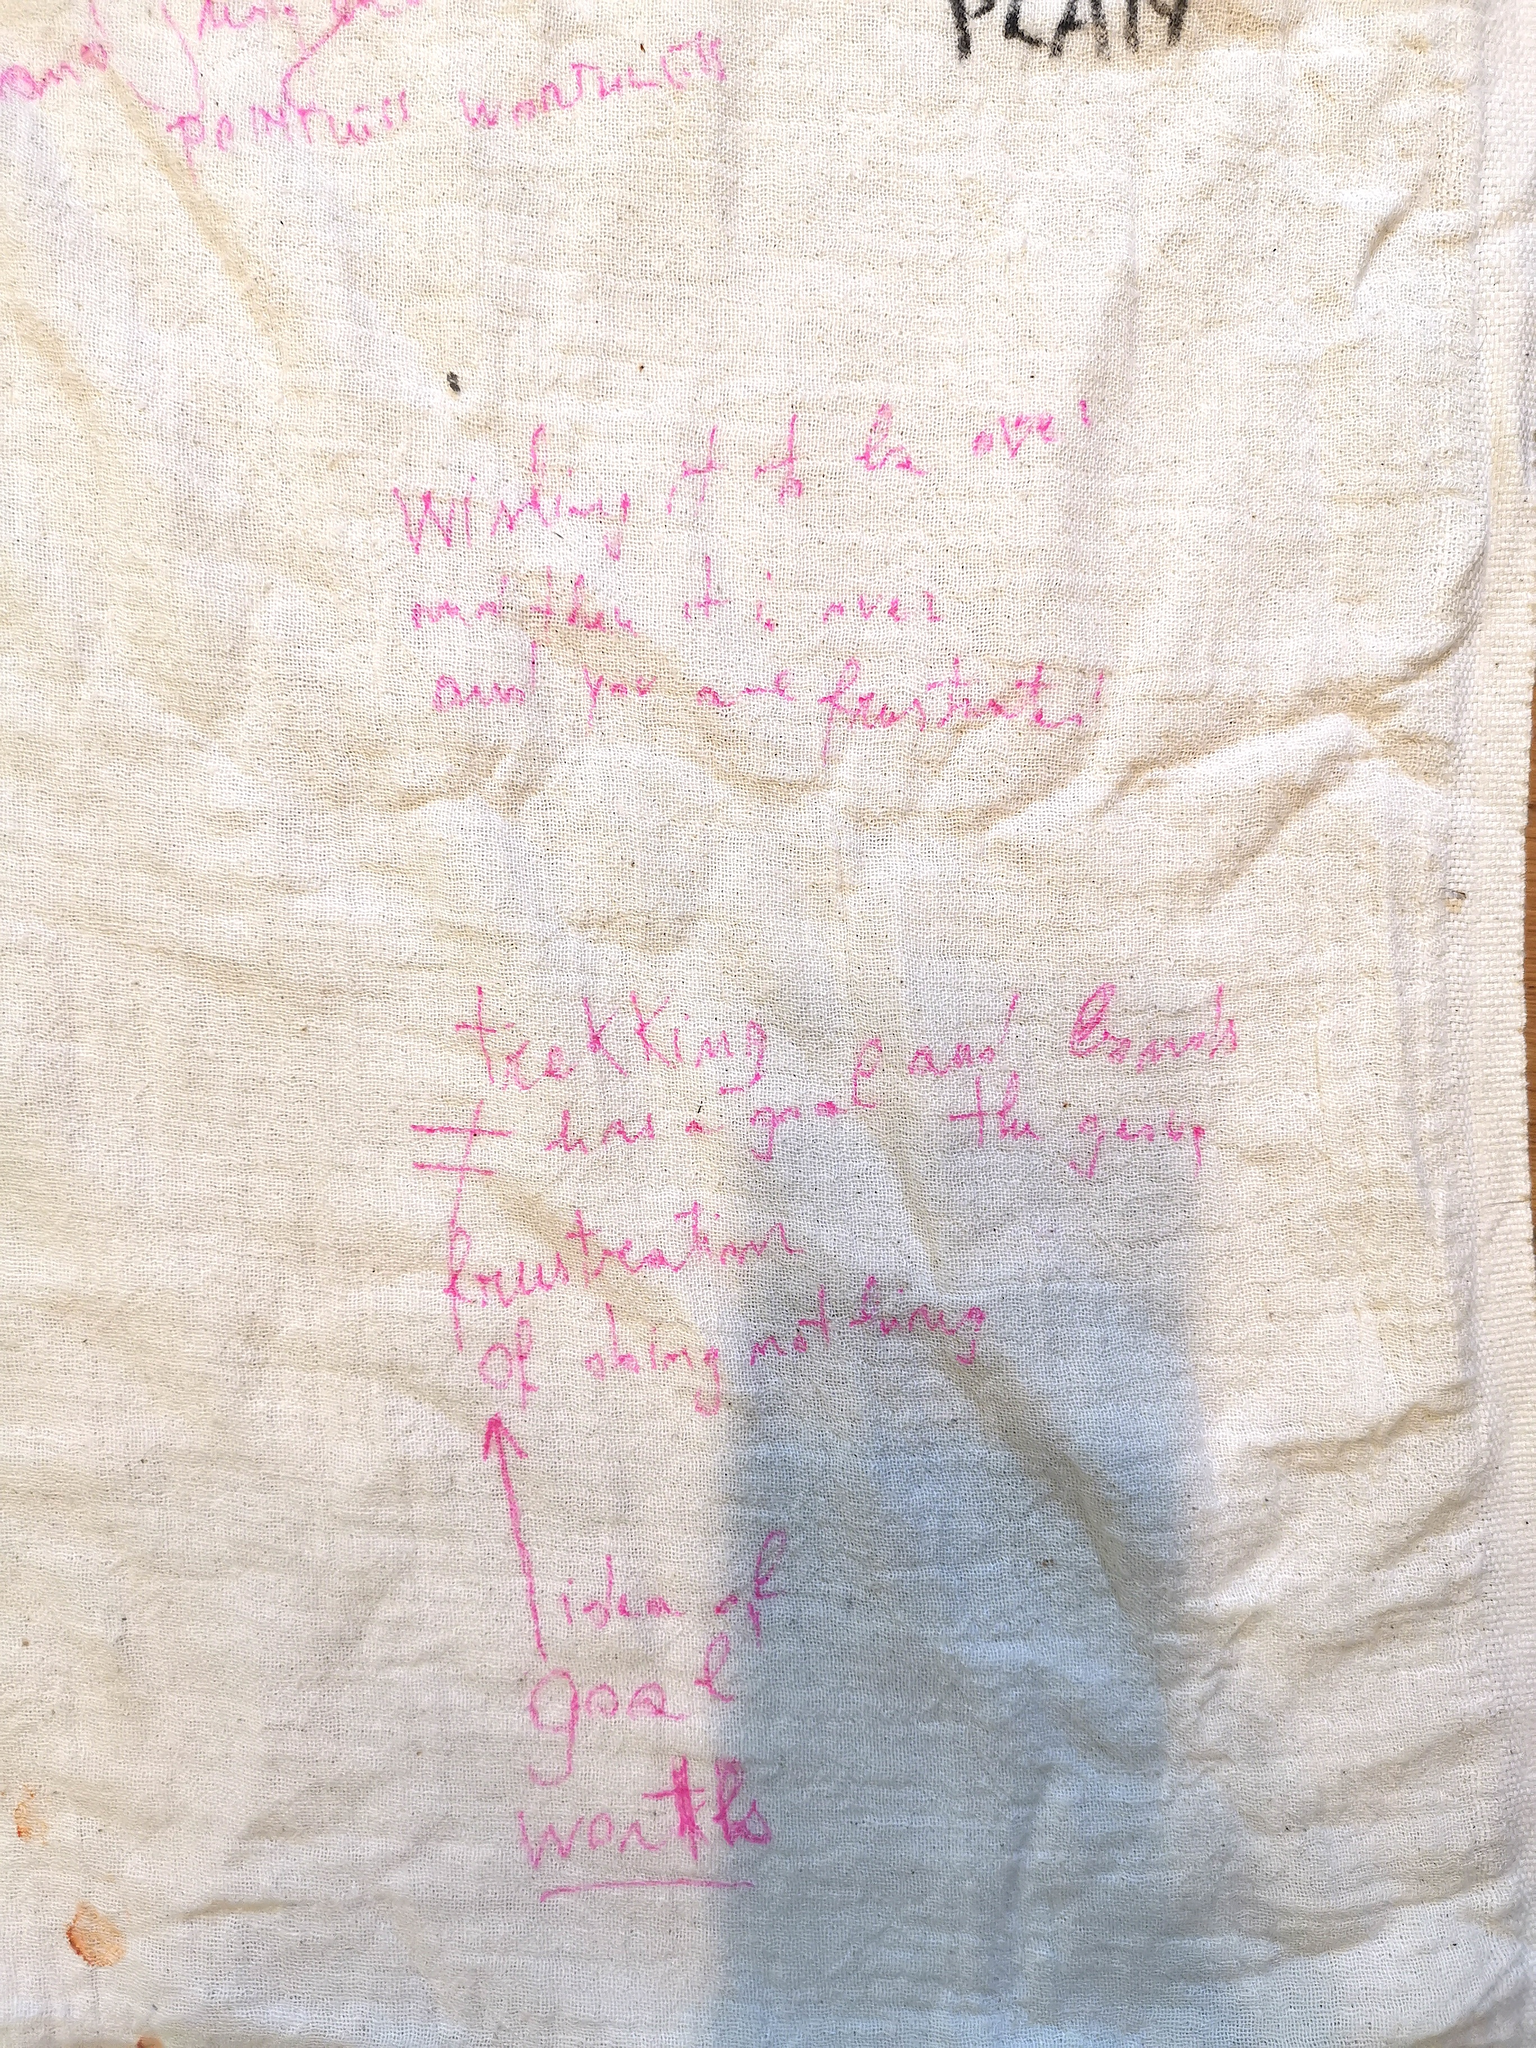 PLAN
and
pointless worthless
Wishing it to be over
and then it is over
and you are frustrated
trekking and bonds
has a goal the group
≠
frustration
of doing nothing
idea of
goal
worths